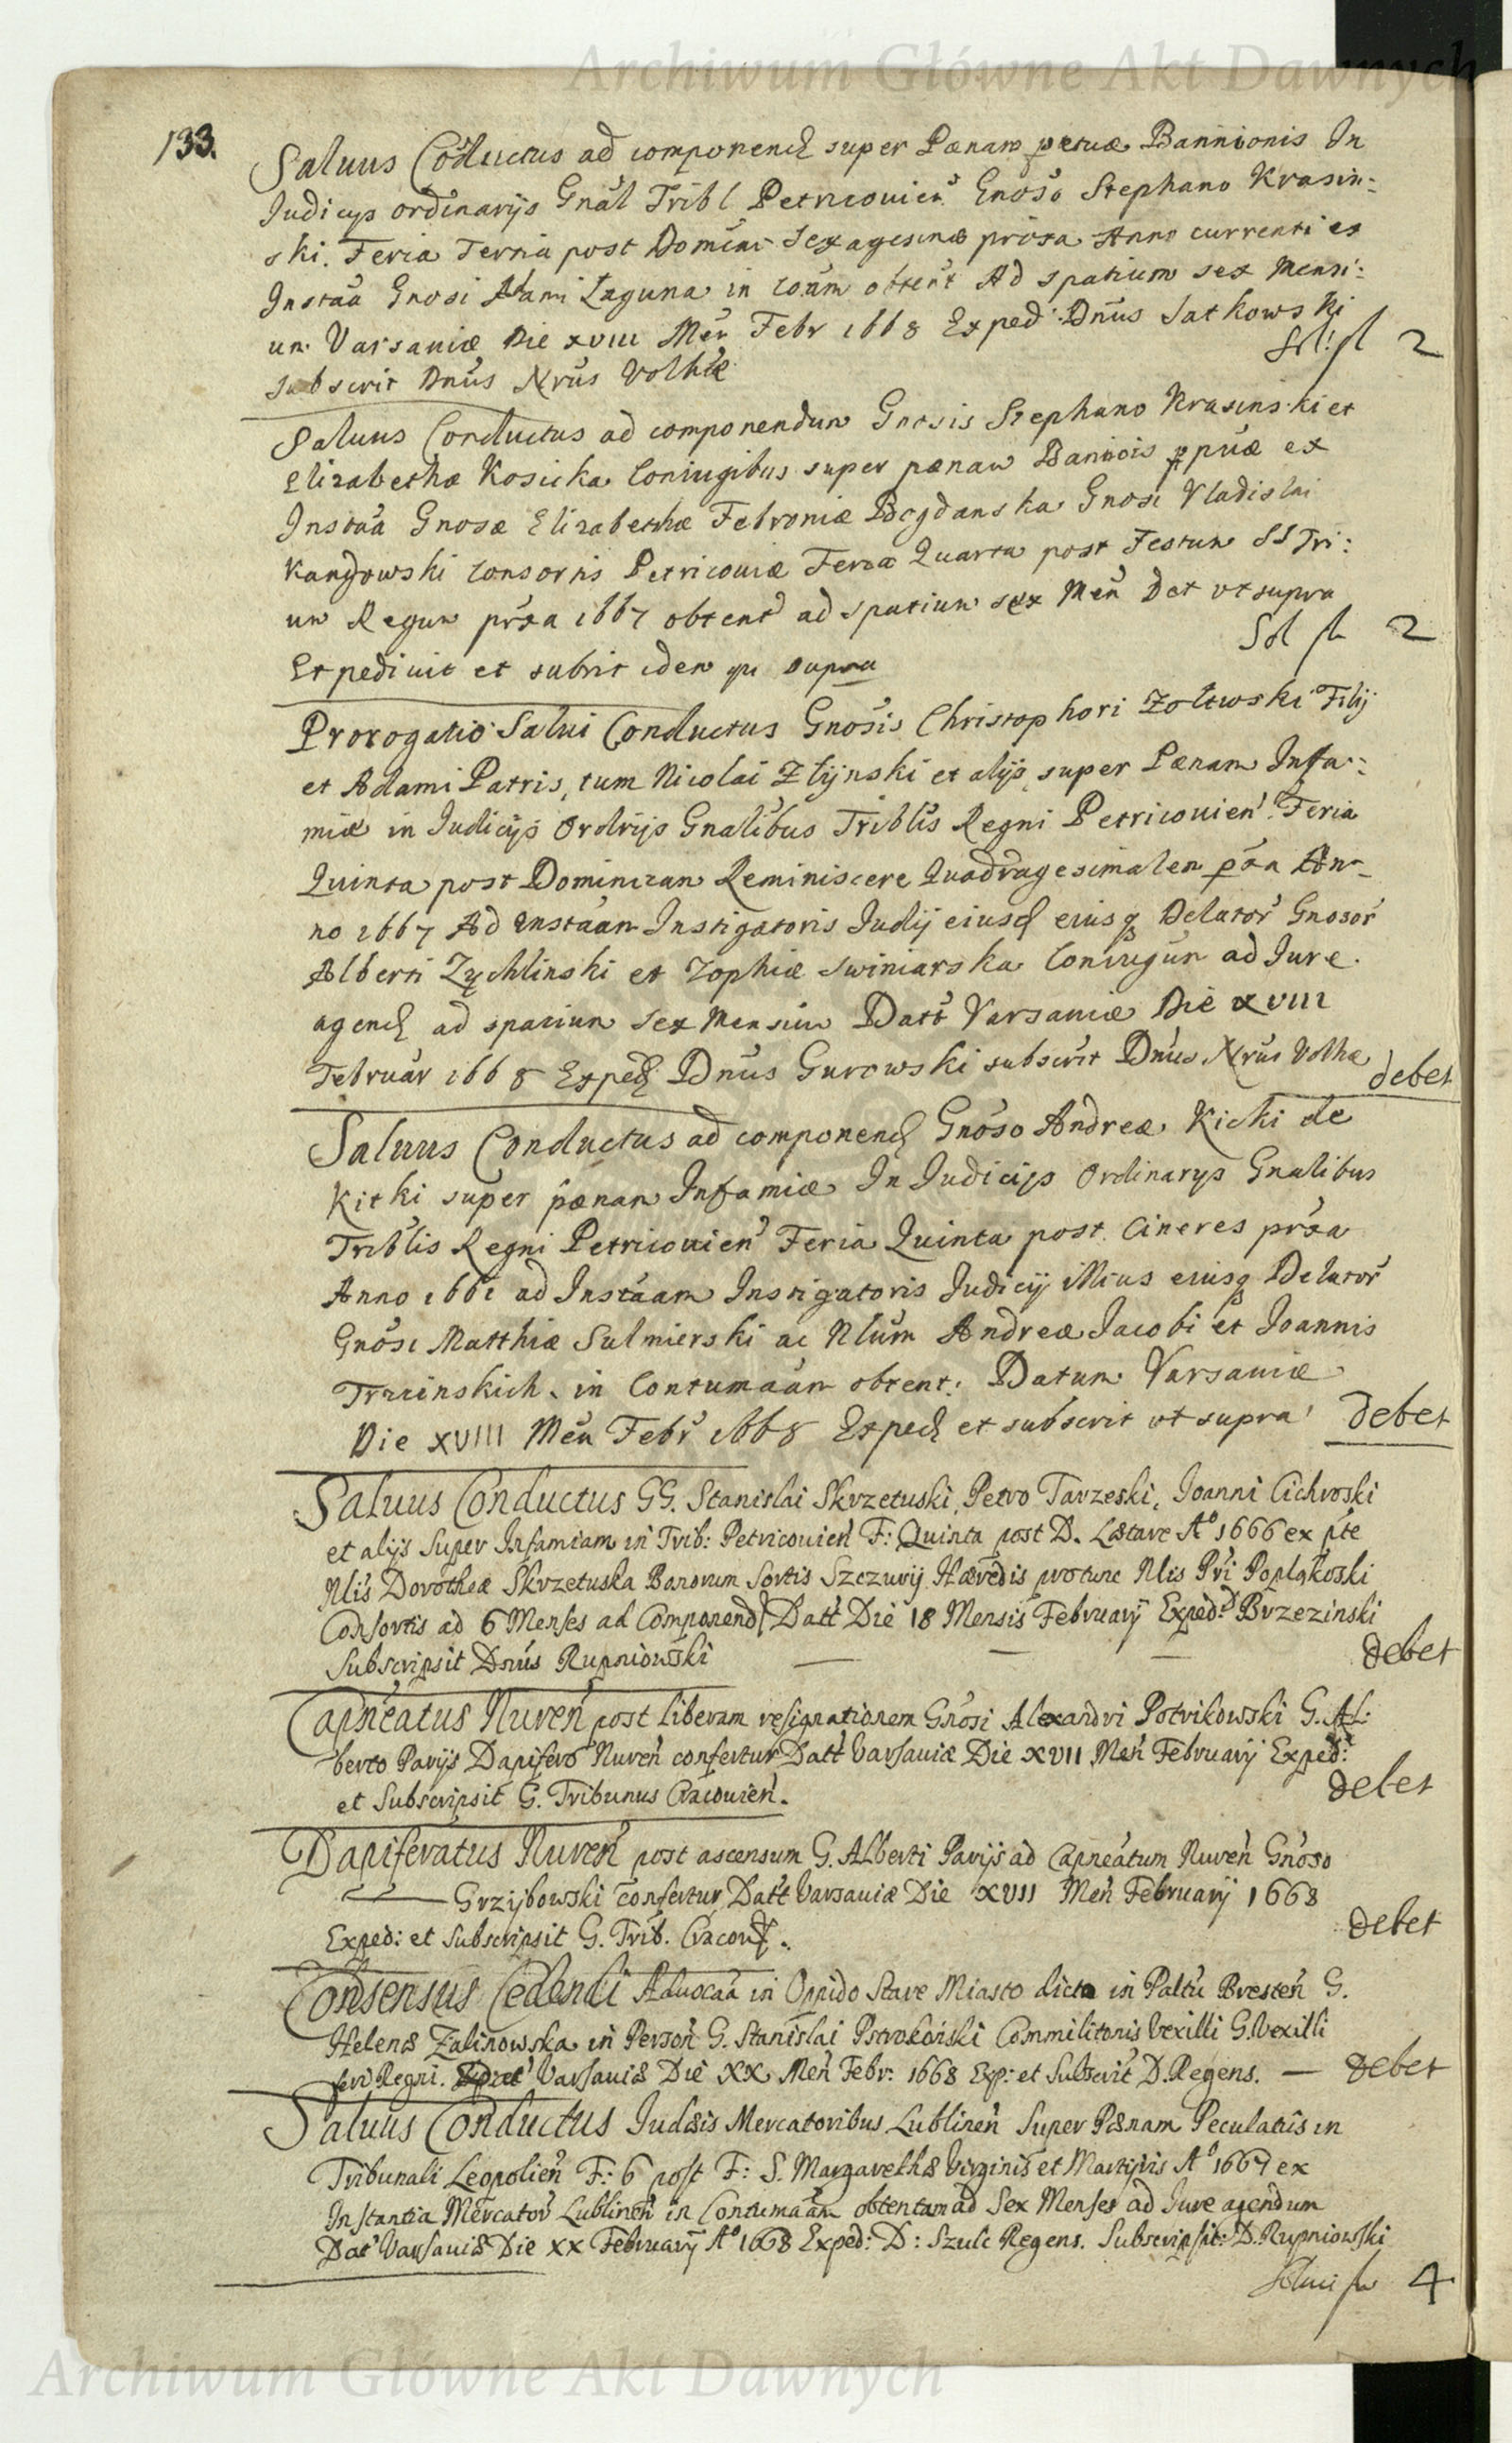 Archiwum Główne Akt Dawnych
133.
Saluus Coductus ad componend super Pænam ppetuæ Bannionis In
Judicijs ordinarijs Gnal Tribl Petricouien Gnoso Stephano Krasin:
ski. Feria Tertia post Domini Sexagesimæ próxa Anno currenti ex
Instaa Gnosi Adami Laguna in coum obtent Ad spatium sex Mensi:
um Varsauiæ Die XVIII Men Febr 1668 Exped: Dnus Satkowski
subscrit Dnus Nrus Volhiæ
Sol: fl 2
Saluus Conductus ad componendum Gnosis Stephano Krasinski et
Elizabethæ Kosicka Coniugibus super pænam Bannois ppuæ ex
Instaa Gnosæ Elizabethæ Febroniæ Bogdanska Gnosi Vladislai
Kandowski consortis Petricouiæ Feria Quarta post Festum SS Tri:
um Regum próxa 1667 obtent ad spatium sex Men Dat vt supra
Expediuit et subrit idem qui supra
Sol fl 2
Prorogatio Salui Conductus Gnosis Christophori Zoltowski Filij
et Adami Patris, tum Nicolai Zlijnski et alijs super Pænam Infa:
miæ in Judicijs Ordrijs Gnalibus Triblis Regni Petricouien: Feria
Quinta post Dominicam Reminiscere Quadragesimalem pxa An-
no 1667 Ad Instáam Instigatoris Judij eiusd eiusq Delator Gnosor
Alberti Zychlinski et Zophiæ Swiniarska Coniugum ad Jure
agend ad spatium Sex Mensium Datt Varsauiæ Die XVIII
Februar 1668 Exped Dnus Gurowski subscrit Dnus Nrus Volhæ
debet
Saluus Conductus ad componend Gnoso Andreæ Kicki de
Kicki super pænam Infamiæ In Judicijs Ordinarys Gnalibus
Triblis Regni Petricouien Feria Quinta post Cineres próxa
Anno 1661 ad Instáam Instigatoris Judicij illius eiusq Delator
Gnosi Matthiæ Sulmierski ac Nlum Andreæ Jacobi et Joannis
Trzcinskich in Contumaam obtent: Datum Varsauiæ
Die XVIII Men Febr 1668 Exped et subscrit vt supra
debet
Saluus Conductus GG. Stanislai Skrzetuski, Petro Tarzeski, Joanni Cichroski
et alijs Super Infamiam in Trib: Petricouien F: Quinta post D. Lætare A° 1666 ex pte
Nlis Dorotheæ Skrzetuska Bonorum Sortis Szczurij Hæredis protunc Nlis Pri Poplakoski
Consortis ad 6 Menses ad Componend Datt Die 18 Mensis February Exped: D Brzezinski
Subscripsit Dnus Rupniowski
debet
Capneatus Nuren post liberam resignationem Gnosi Alexandri Potrikowski G. Al:
berto Parijs Dapifero Nuren confertur Datt Varsauiæ Die XVII Men February Exped:
et Subscripsit G. Tribunus Cracouien.
debet
Dapiferatus Nuren post ascensum G. Alberti Parijs ad Capneatum Nuren Gnoso
Grzijbowski confertur Datt Varsauiæ Die XVII Men February 1668
Exped: et Subscripsit G. Trib. Cracou.
debet
Consensus Cedendi Aduocaa in Oppido Stare Miasto dicto in Paltu Bresten G.
Helenæ Zalinowska in Person G. Stanislai Pstrokonski Commilitonis Vexilli G. Vexilli
feri Regni. Varsauiæ Die XX Men Febr: 1668 Exp: et Subscrit D. Regens. — debet
Saluus Conductus Judæis Mercatoribus Lublinen Super Pænam Peculatus in
Tribunali Leopolien F: 6 post F: S. Margarethæ Virginis et Martijris A° 1667 ex
Instantia Mercator Lublinen in Contumaam obtentam ad Sex Menses ad Jure agendum
Dat Varsauiæ Die XX February A° 1668 Exped: D: Szulc Regens. Subscripsit: D. Rupniowski
Solui fl 4
Archiwum Główne Akt Dawnych